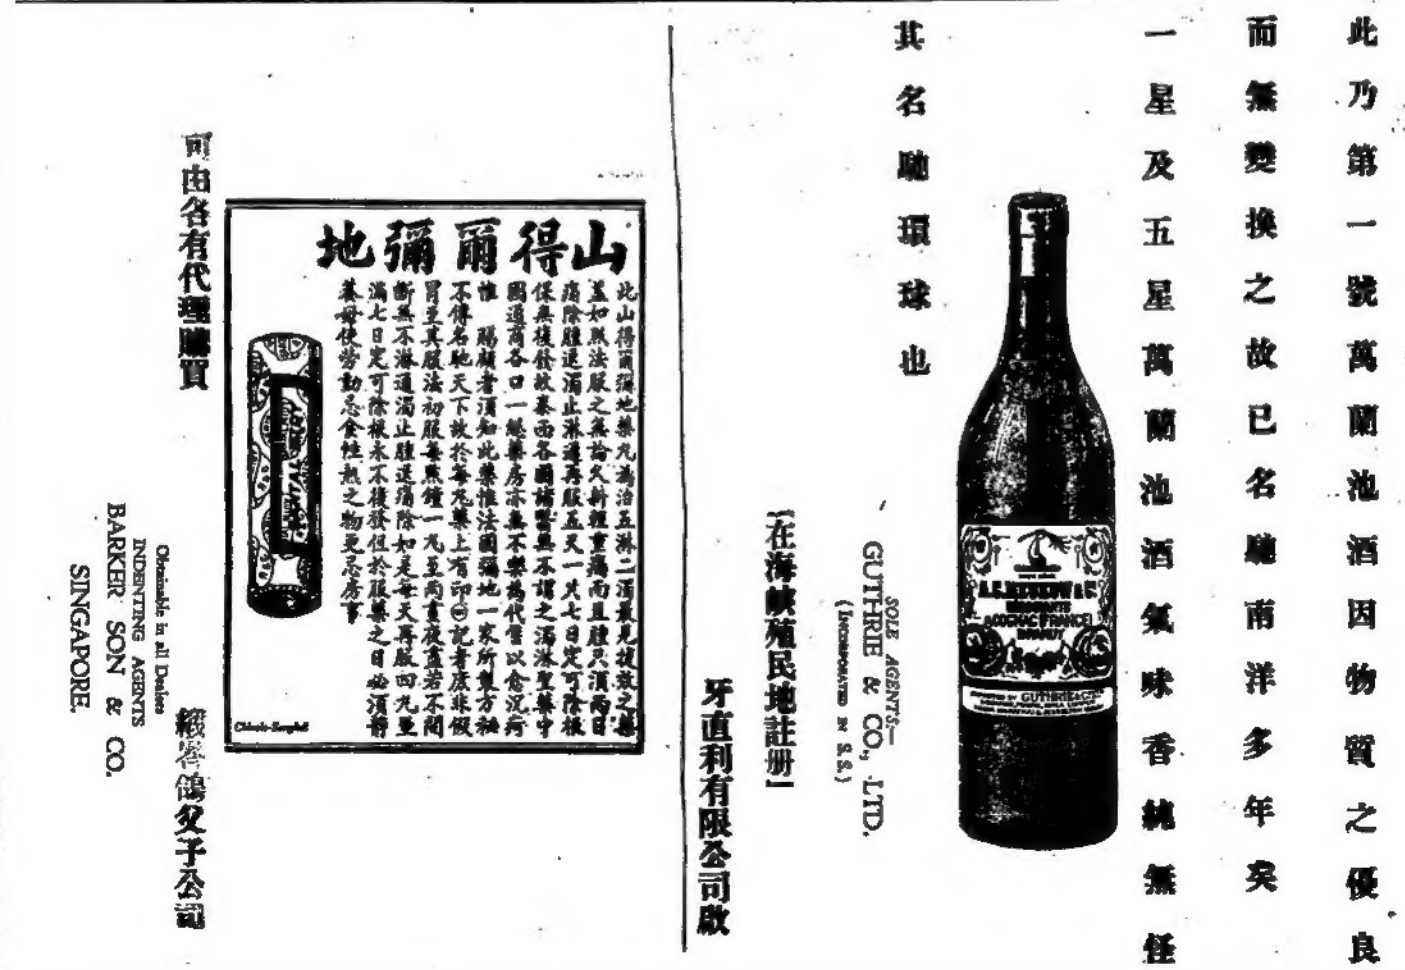 此乃第一號萬蘭池酒因物質之優良
而無變換之故已名馳南洋多年矣
一星及五星萬蘭池酒氣味香純無任
其名馳環球也
COGNAC (FRANCE)
BRANDY
GUTHRIE & CO
SOLE AGENTS:—
GUTHRIE & CO., LTD.
(INCORPORATED IN S.S.)
「在海峽殖民地註册」
牙直利有限公司啟
山得爾彌地
此山得爾彌地藥丸為治五淋二濁最見捷效之藥
蓋如照法服之無論久新輕重痛而且腫只須兩日
痛除腫退濁止淋通再服五天一共七日定可除根
保無復發故泰西各國諸醫無不謂之濁淋聖藥中
國通商各口一經藥房亦無不樂為代售以愈沉疴
惟 賜顧者須知此藥惟法國彌地一家所製方秘
不傳名馳天下故於每丸藥上有印㊀記者庶非假
冒至其服法初服每點鐘一丸至兩晝夜盡若不間
斷無不淋通濁止腫退痛除如是每天再服四丸里
滿七日定可除根永不復發但於服藥之日必須靜
養毋使勞動忌食性熱之物更忌房事
SANTAL MIDY
可由各有代理購買
父子公司
Obtainable in all Dealers
INDENTING AGENTS
BARKER SON & CO.
SINGAPORE.